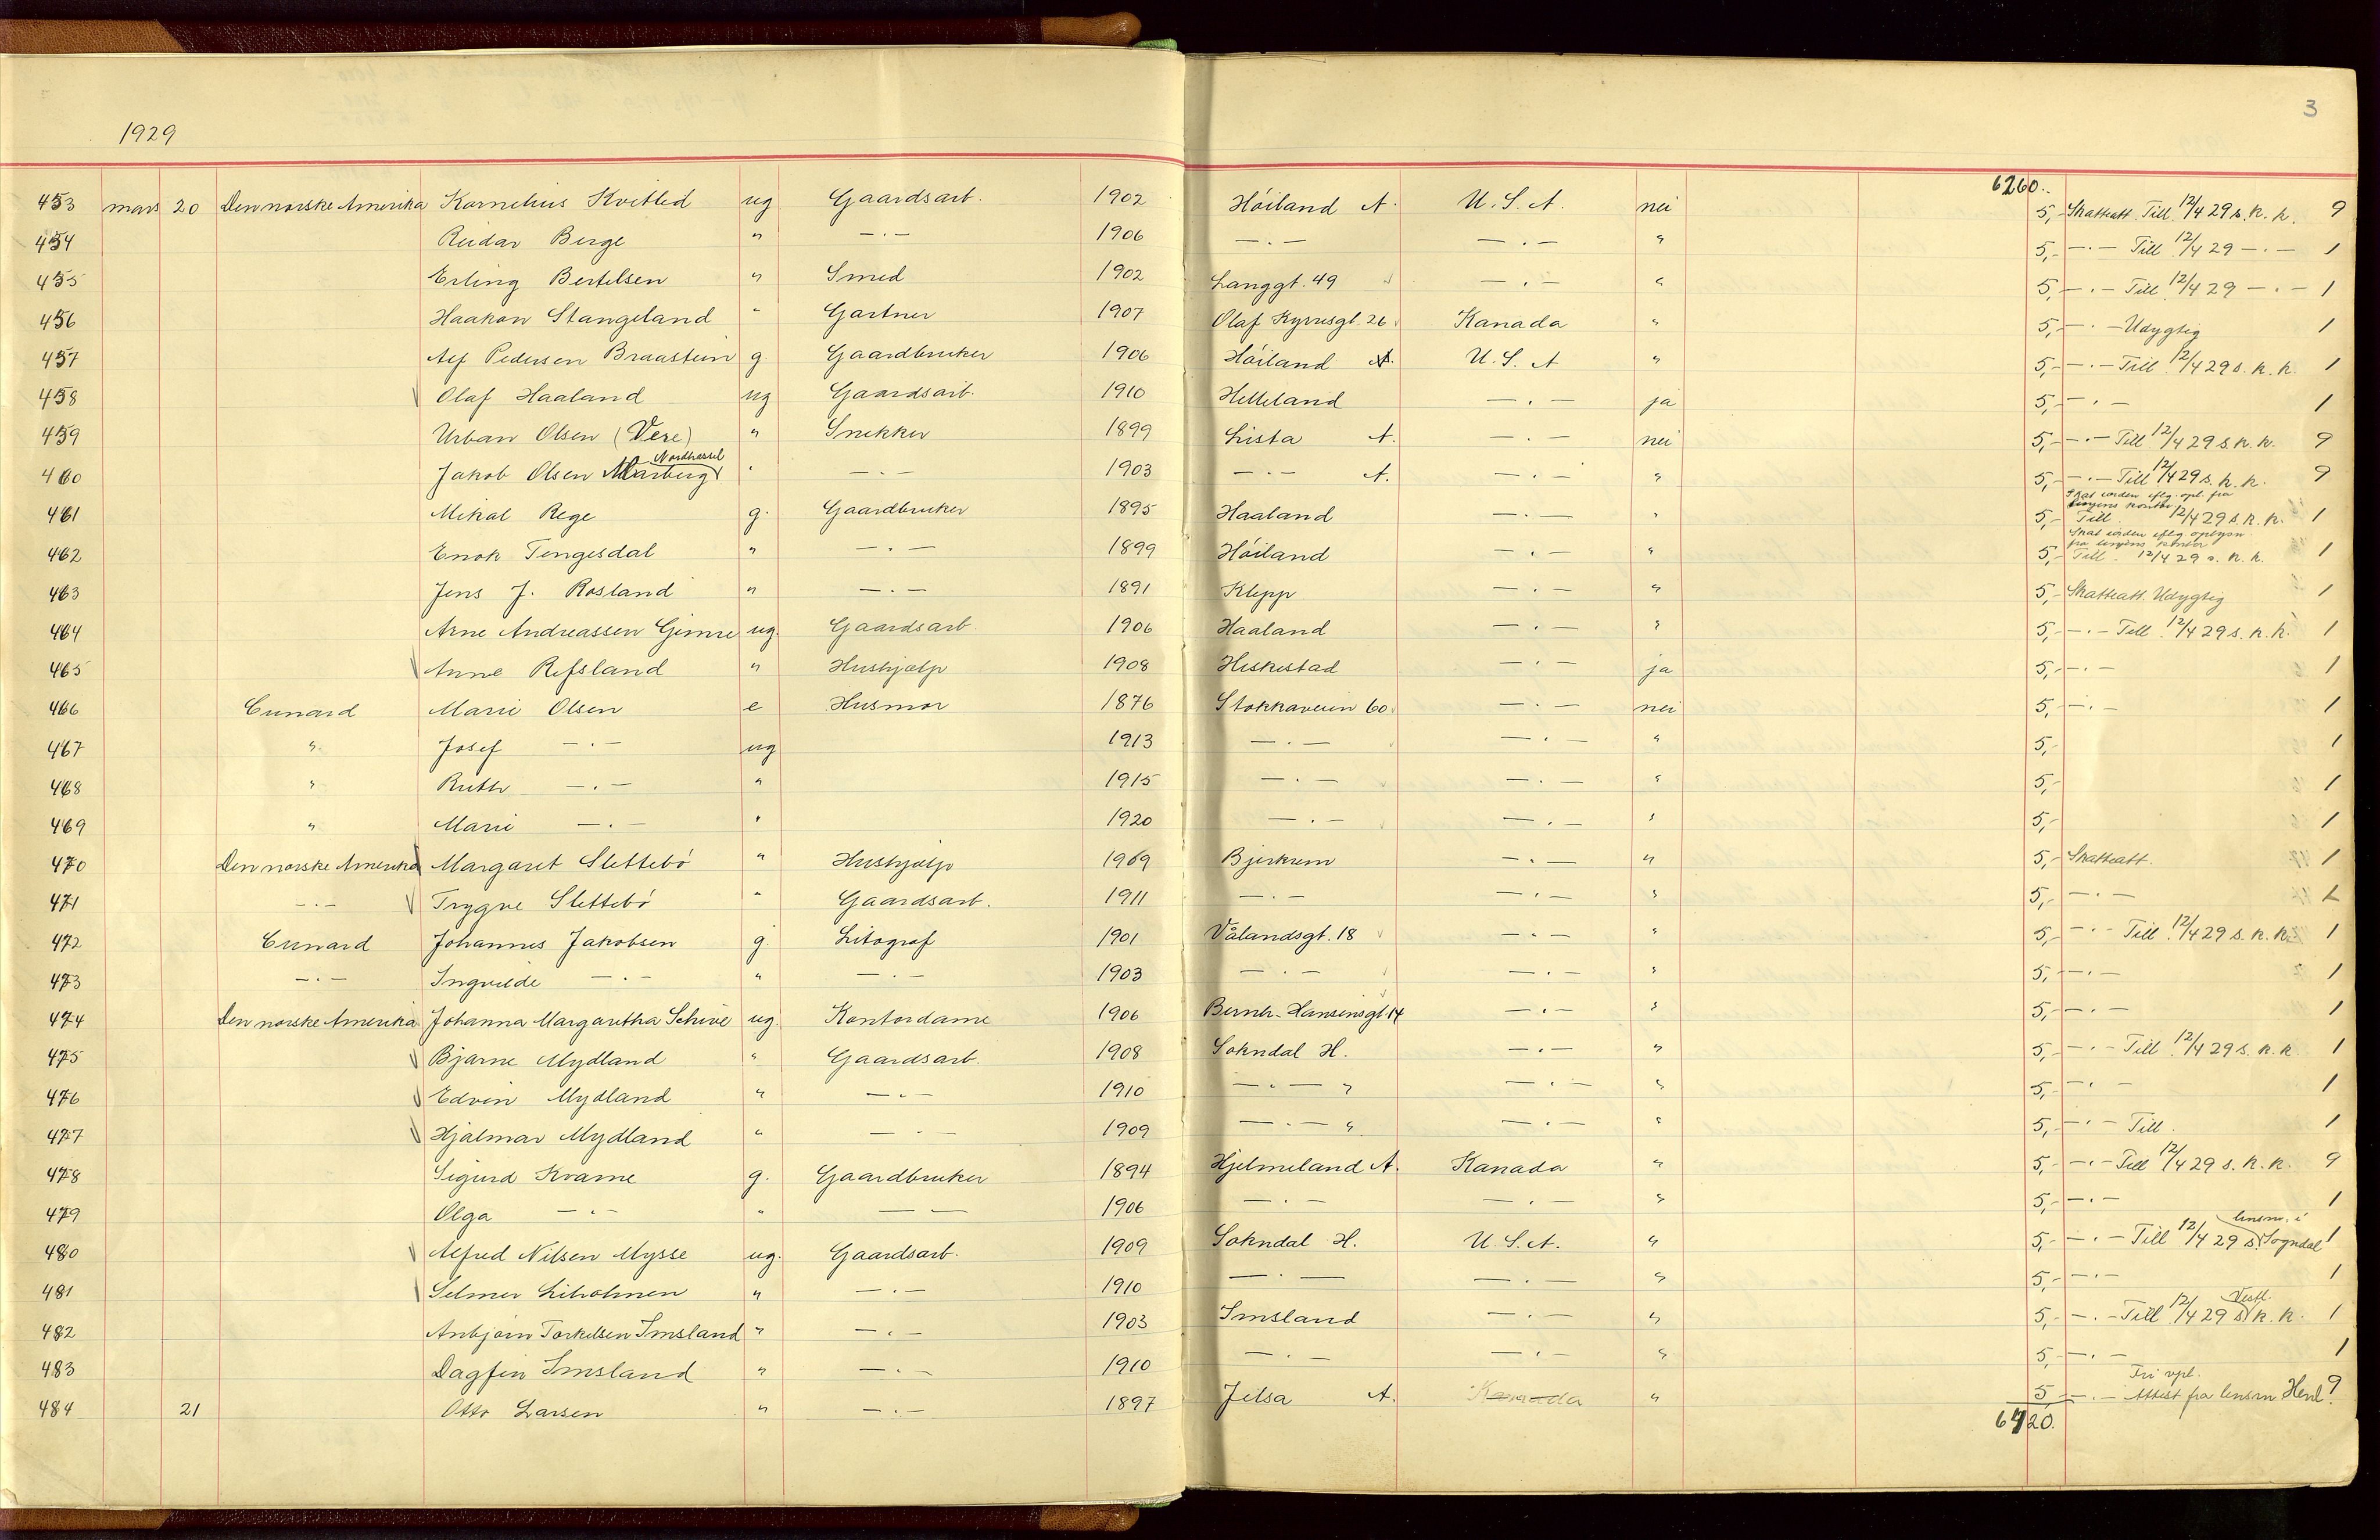 3
1929
6260.-
453 mars 20 Den norske Amerika Kornelius Kvitled ug Gaardsarb. 1902 Höiland A. U.S.A. nei 5,- Skatteatt. Till. 12/4 29 s.k.k. 9
454 Reidar Berge " —.— 1906 —.— —.— " 5,- —.— Till. 12/4 29 —.— 1
455 Erling Bertelsen " Smed 1902 Langgt. 49 —.— " 5,- —.— Till. 12/4 29 —.— 1
456 Haakon Stangeland " Gartner 1907 Olaf Kyrresgt. 26 Kanada " 5,- —.— Udygtig 1
457 Alf Pedersen Braastein g. Gaardbruker 1906 Höiland A. U.S.A " 5,- —.— Till. 12/4 29 s.k.k. 1
458 Olaf Haaland ug Gaardsarb. 1910 Helleland —.— ja 5,- —.— 1
459 Urban Olsen (Vere) " Snekker 1899 Lista A. —.— nei 5,- —.— Till. 12/4 29 s.k.k. 9
460 Jakob Olsen Marberg Nordhassel " —.— 1903 —.— A. —.— " 5,- —.— Till. 12/4 29 s.k.k. 9
461 Mikal Rege g. Gaardbruker 1895 Haaland —.— " 5,- Skat iorden eflg. opl. fra kontor Till. 12/4 29 s.k.k. 1
462 Enok Tengesdal " —.— 1899 Höiland —.— " 5,- Skat iorden eflg. oplysn. fra kontor Till. 12/4 29 s.k.k. 1
463 Jens J. Rosland " —.— 1891 Klepp —.— " 5,- Skatteatt. Udygtig 1
464 Arne Andreassen Gimre ug. Gaardsarb. 1906 Haaland —.— " 5,- —.— Till. 12/4 29 s.k.k. 1
465 Anne Refsland " Hushjælp 1908 Heskestad —.— ja 5,- —.— 1
466 Cunard Marie Olsen e Husmor 1876 Stokkaveien 60 —.— nei 5,- —.— 1
467 " Josef —.— ug 1913 —.— —.— " 5,- 1
468 " Ruth —.— " 1915 —.— —.— " 5,- 1
469 " Marie —.— " 1920 —.— —.— " 5,- 1
470 Den norske Amerika Margaret Slettebö " Hushjælp 1909 Bjerkrem —.— " 5,- Skatteatt. 1
471 —.— Trygve Slettebö " Gaardsarb. 1911 —.— —.— " 5,- —.— 1
472 Cunard Johannes Jakobsen g. Litograf 1901 Vålandsgt. 18 —.— " 5,- —.— Till. 12/4 29 s.k.k. 1
473 —.— Ingvilde —.— " —.— 1903 —.— —.— " 5,- —.— 1
474 Den norske Amerika Johanna Margaretha Schive ug. Kontordame 1906 Bernh. Hansensgt. 14 —.— " 5,- —.— 1
475 Bjarne Mydland " Gaardsarb. 1908 Sokndal H. —.— " 5,- —.— Till. 12/4 29 s.k.k 1
476 Edvin Mydland " —.— 1910 —.— " —.— " 5,- —.— 1
477 Hjalmar Mydland " —.— 1909 —.— " —.— " 5,- —.— Till. 1
478 Sigurd Kvame g. Gaardbruker 1894 Hjelmeland A. Kanada " 5,- —.— Till. 12/4 29 s.k.k. 9
479 Olga —.— " —.— 1906 —.— —.— " 5,- —.— 1
480 Alfred Nilsen Mysse ug. Gaardsarb. 1909 Sokndal H. U.S.A. " 5,- —.— Till. 12/4 29 s. lensm. i Sogndal 1
481 Selmer Liholmen " —.— 1910 —.— —.— " 5,- —.— 1
482 Anbjörn Torkelsen Imsland " —.— 1903 Imsland —.— " 5,- —.— Till. 12/4 29 s. Vestl. k.k. 1
483 Dagfin Imsland " —.— 1910 —.— —.— " 5,- —.— 1
484 21 Otto Larsen " —.— 1897 Jelsa A. Kanada " 5 —.— Attest fra lensm 9
6420.